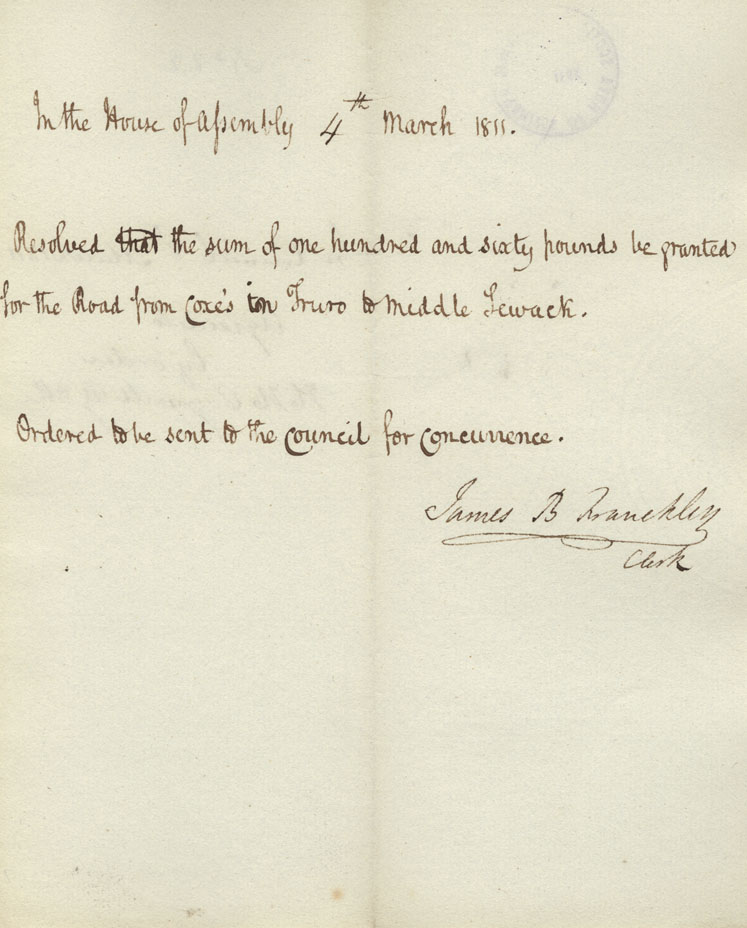 In the House of Assembly 4th March 1811.
Resolved that the sum of one hundred and sixty pounds be granted
for the Road from Coxe's in Truro to Middle Sewack.
Ordered to be sent to the Council for concurrence.
James B Franckley
Clerk